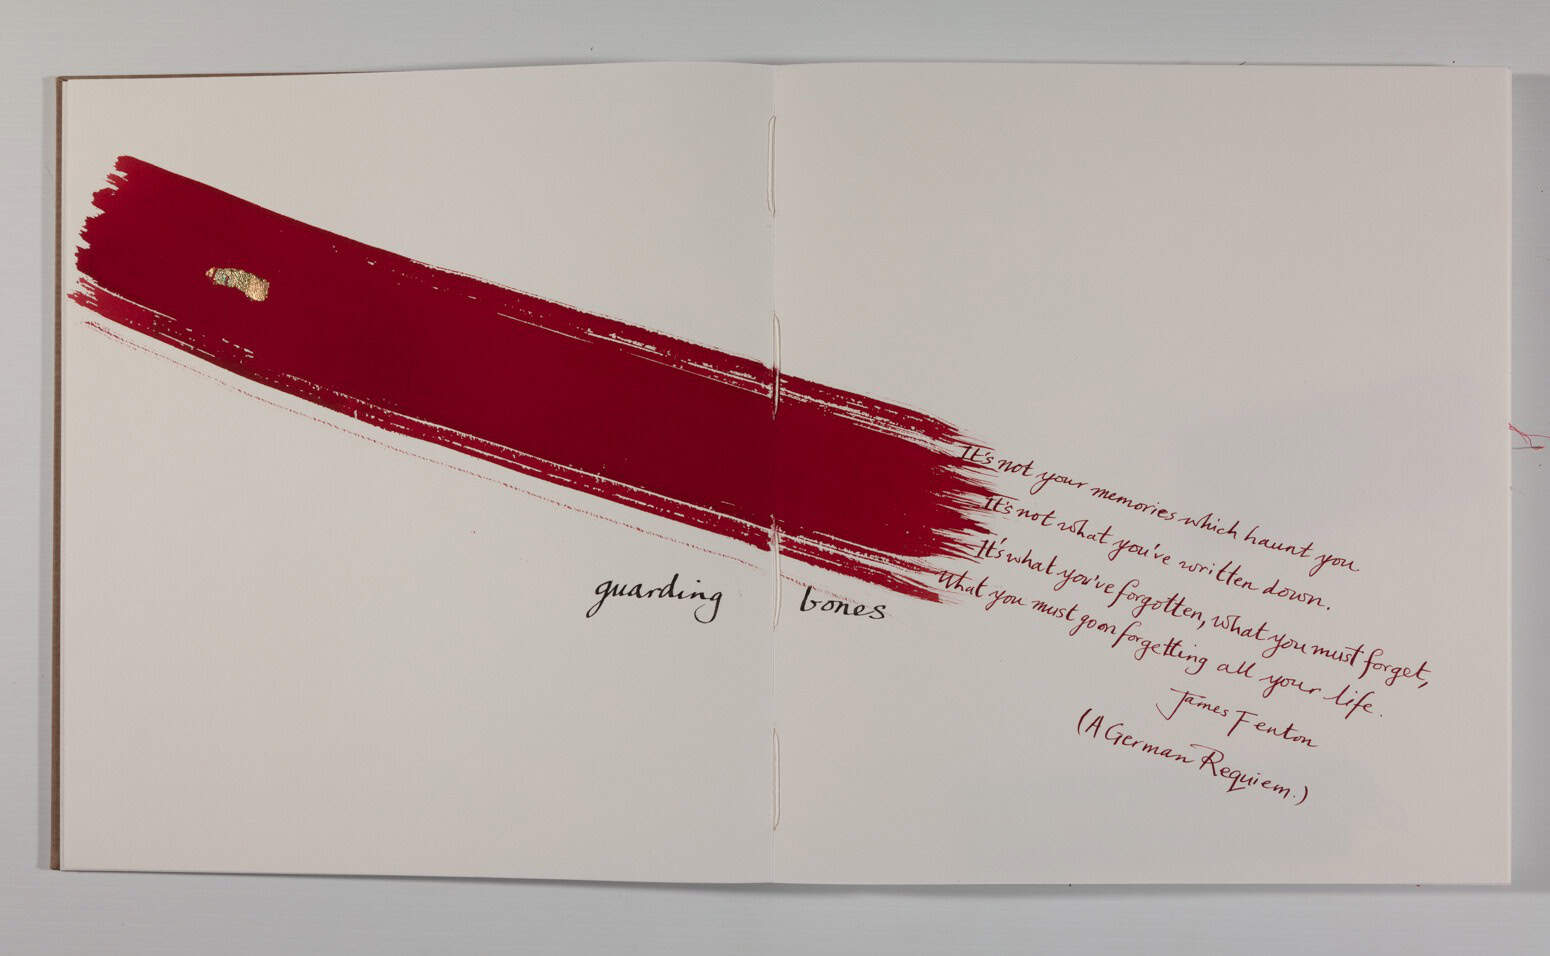 guarding bones
It's not your memories which haunt you
It's not what you've written down.
It's what you've forgotten, what you must forget,
What you must go on forgetting all your life.
James Fenton
(A German Requiem.)